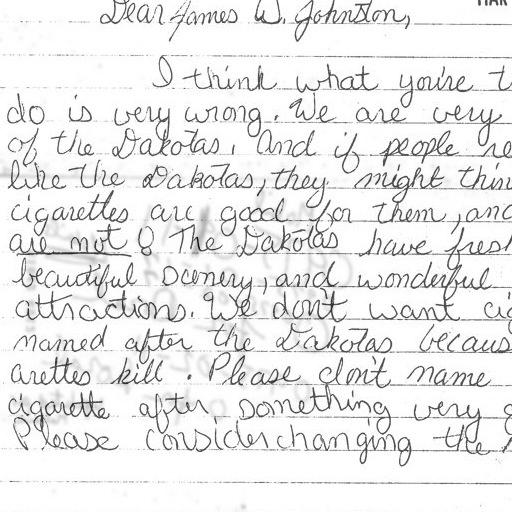 MAR
Dear James W. Johnston,
I think what you're t
do is very wrong. We are very
of the Dakotas. And if people re
like the Dakotas, they might thin
cigarettes are good for them, and
are not! The Dakotas have fres
beautiful scenery, and wonderful
attractions. We don't want cig
named after the Dakotas becaus
arettes kill. Please don't name
cigarette after something very g
Please consider changing the